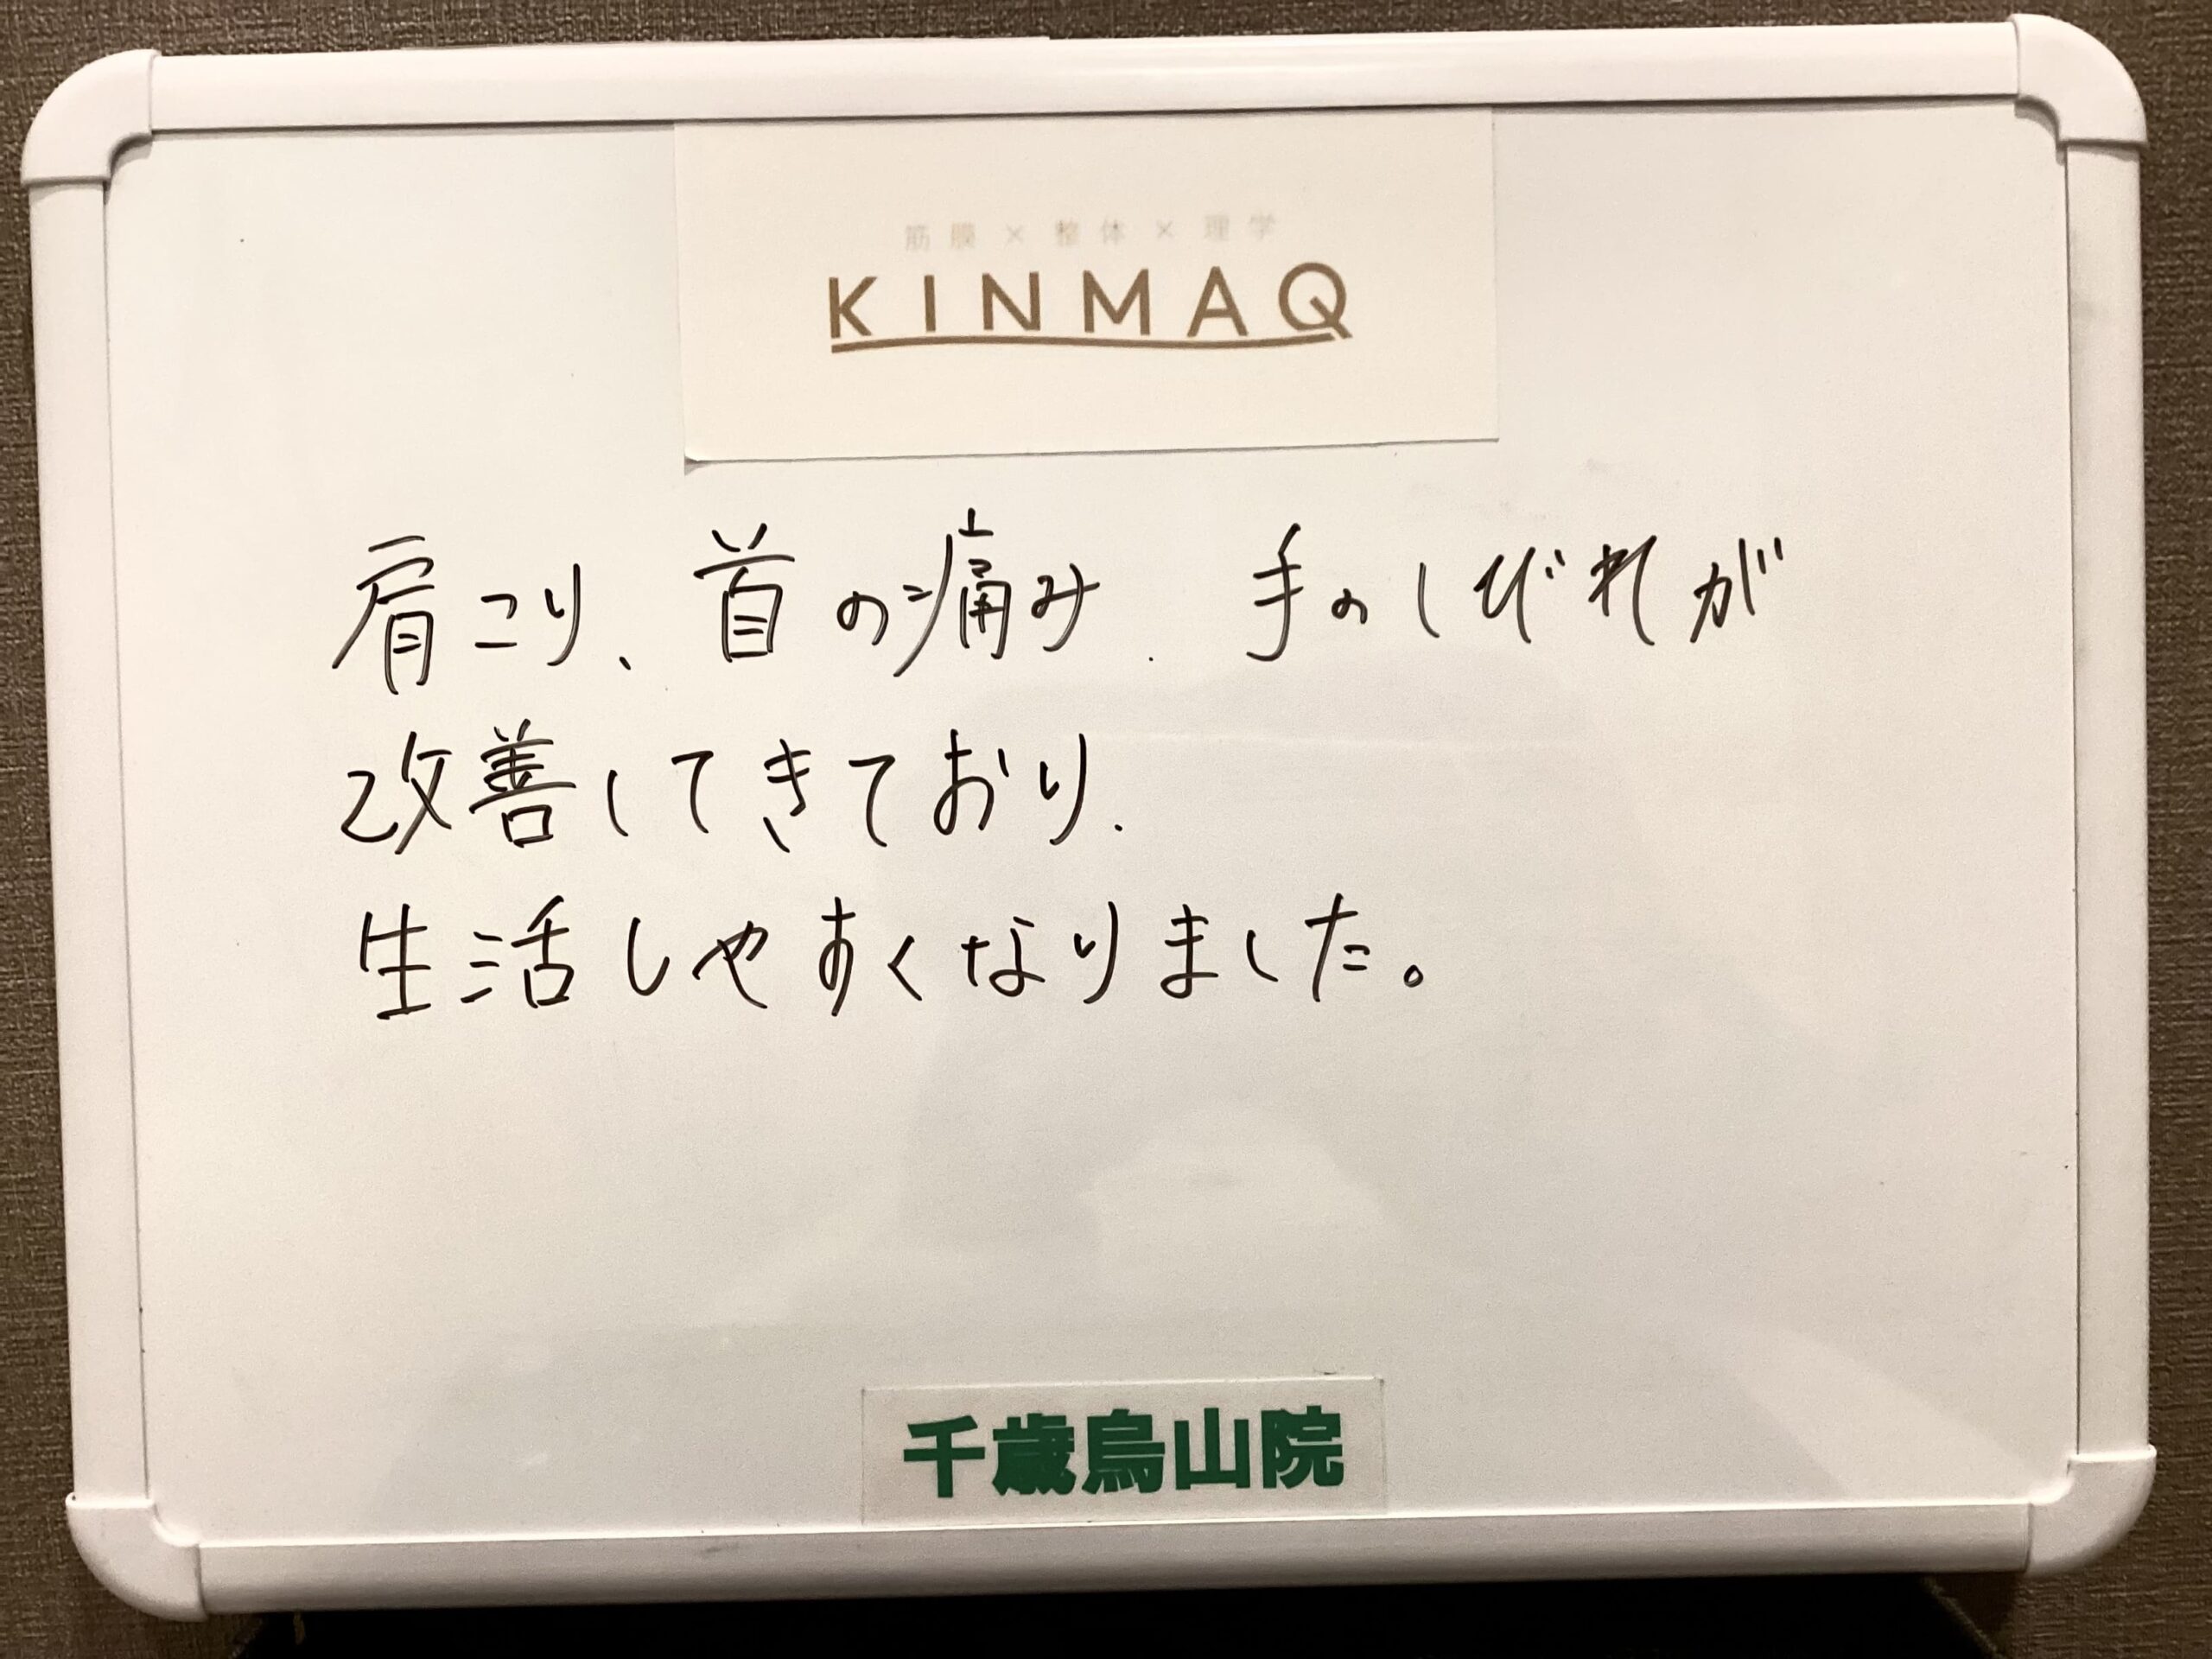 筋膜×整体×理学
KINMAQ
肩こり、首の痛み、手のしびれが
改善してきており、
生活しやすくなりました。
千歳烏山院